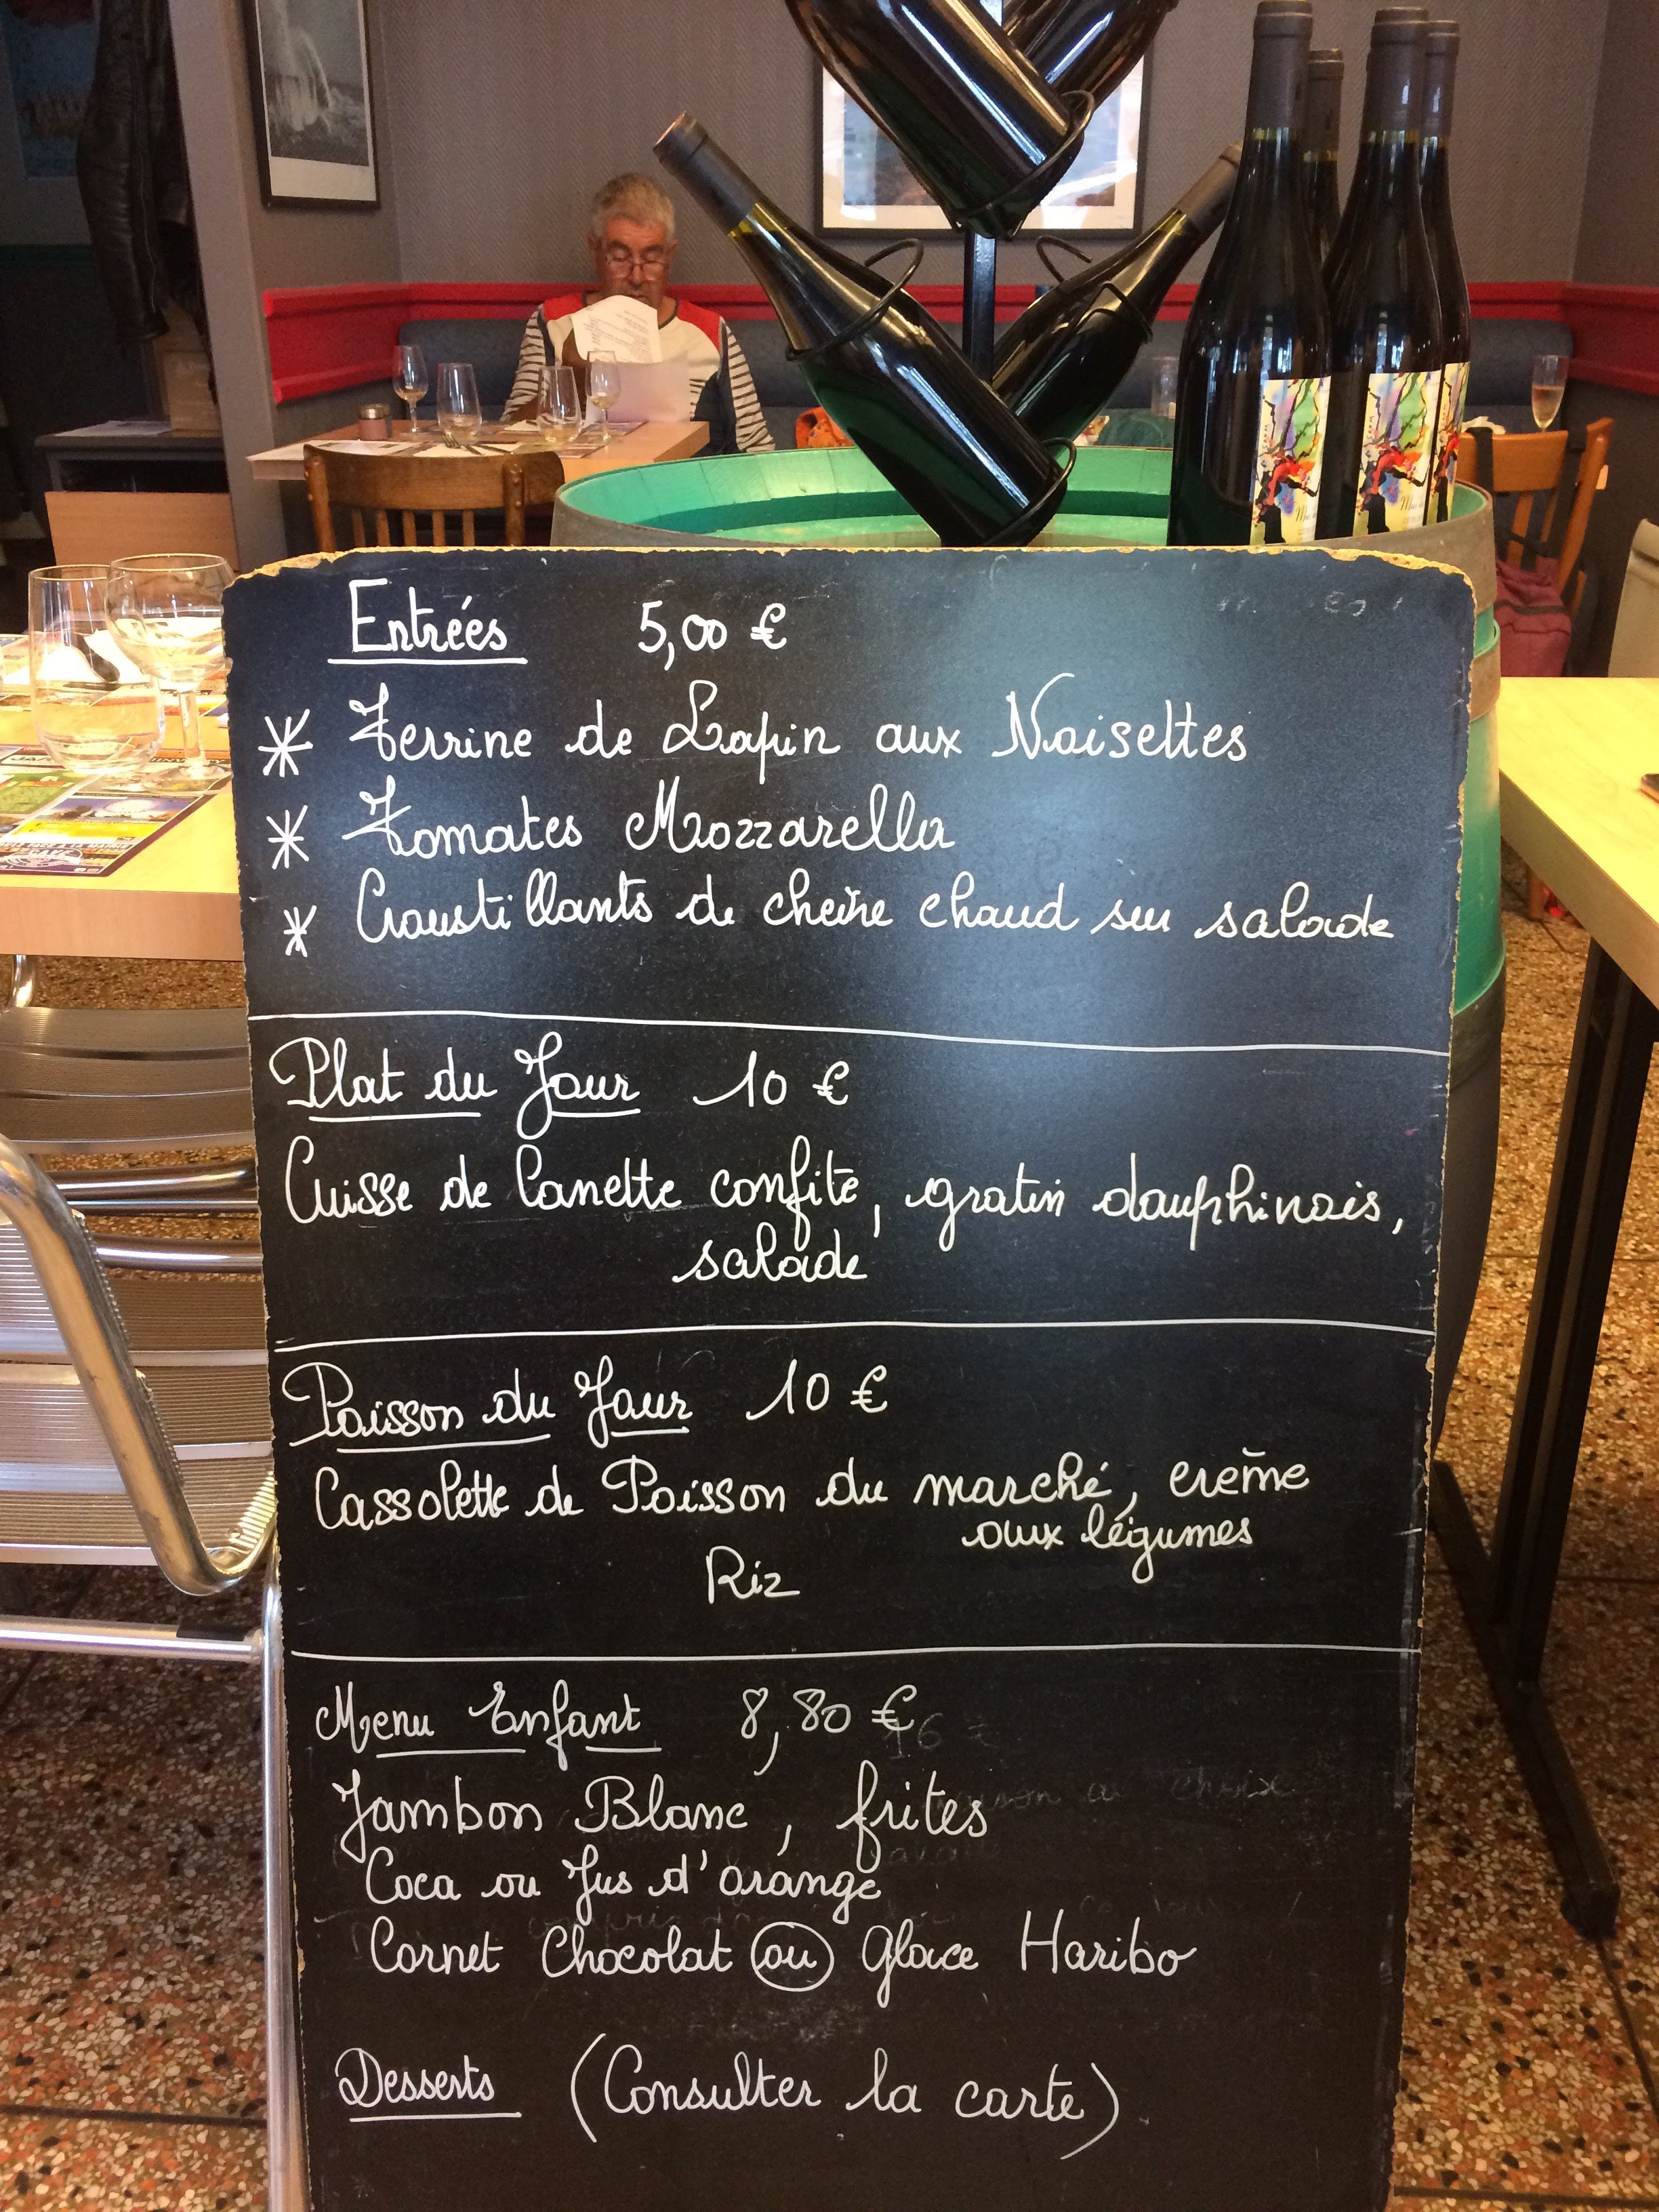 Entrées 5,00 €
* Terrine de Lapin aux Noisettes
* Tomates Mozzarella
* Croustillants de chèvre chaud sur salade
Plat du Jour 10 €
Cuisse de Canette confite, gratin dauphinois,
salade
Poisson du Jour 10 €
Cassolette de Poisson du marché, crème
aux légumes
Riz
Menu Enfant 8,80 €
Jambon Blanc, frites
Coca ou Jus d'orange
Cornet Chocolat ou Glace Haribo
Desserts (Consulter la carte)